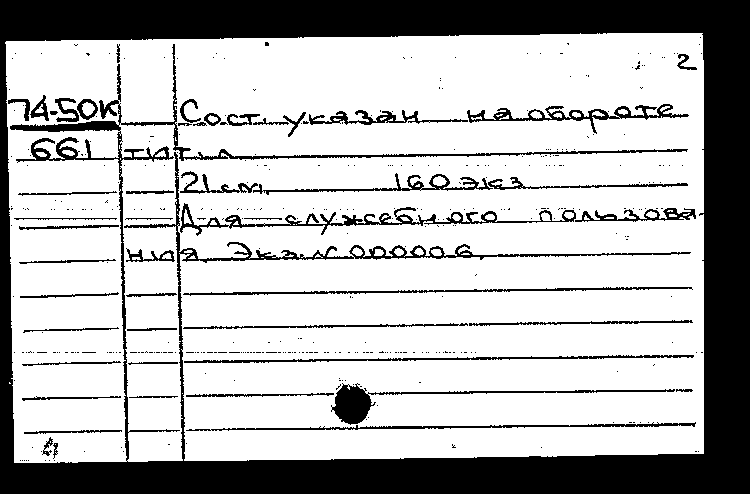 2
74-50К Сост. указан на обороте
661 тит. л.
21 см. 160 экз
Для служебного пользова-
ния Экз. № 000006.